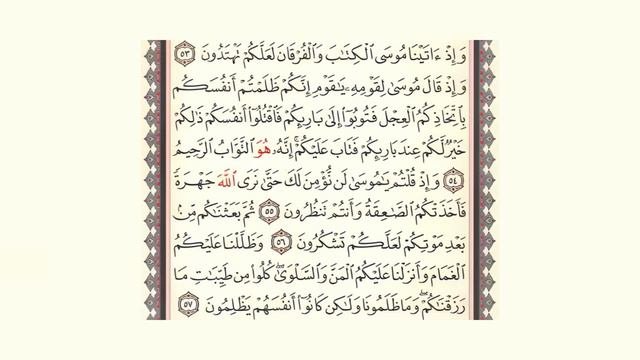 وَإِذْ ءَاتَيْنَا مُوسَى ٱلْكِتَٰبَ وَٱلْفُرْقَانَ لَعَلَّكُمْ تَهْتَدُونَ ٥٣
وَإِذْ قَالَ مُوسَىٰ لِقَوْمِهِۦ يَٰقَوْمِ إِنَّكُمْ ظَلَمْتُمْ أَنفُسَكُم
بِٱتِّخَاذِكُمُ ٱلْعِجْلَ فَتُوبُوٓا۟ إِلَىٰ بَارِئِكُمْ فَٱقْتُلُوٓا۟ أَنفُسَكُمْ ذَٰلِكُمْ
خَيْرٌ لَّكُمْ عِندَ بَارِئِكُمْ فَتَابَ عَلَيْكُمْ إِنَّهُۥ هُوَ ٱلتَّوَّابُ ٱلرَّحِيمُ
٥٤ وَإِذْ قُلْتُمْ يَٰمُوسَىٰ لَن نُّؤْمِنَ لَكَ حَتَّىٰ نَرَى ٱللَّهَ جَهْرَةً
فَأَخَذَتْكُمُ ٱلصَّٰعِقَةُ وَأَنتُمْ تَنظُرُونَ ٥٥ ثُمَّ بَعَثْنَٰكُم مِّنۢ
بَعْدِ مَوْتِكُمْ لَعَلَّكُمْ تَشْكُرُونَ ٥٦ وَظَلَّلْنَا عَلَيْكُمُ
ٱلْغَمَامَ وَأَنزَلْنَا عَلَيْكُمُ ٱلْمَنَّ وَٱلسَّلْوَىٰ كُلُوا۟ مِن طَيِّبَٰتِ مَا
رَزَقْنَٰكُمْ وَمَا ظَلَمُونَا وَلَٰكِن كَانُوٓا۟ أَنفُسَهُمْ يَظْلِمُونَ ٥٧